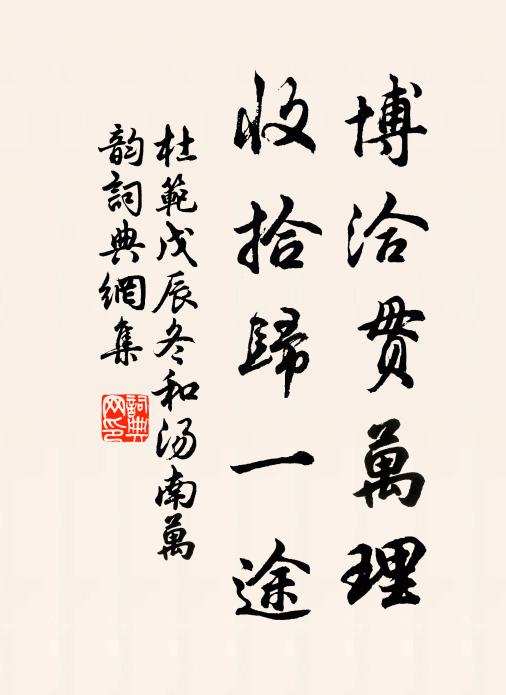 博洽貫萬理
收拾歸一途
杜範戊辰冬和汤南萬
韵詞典網集
詞典网印